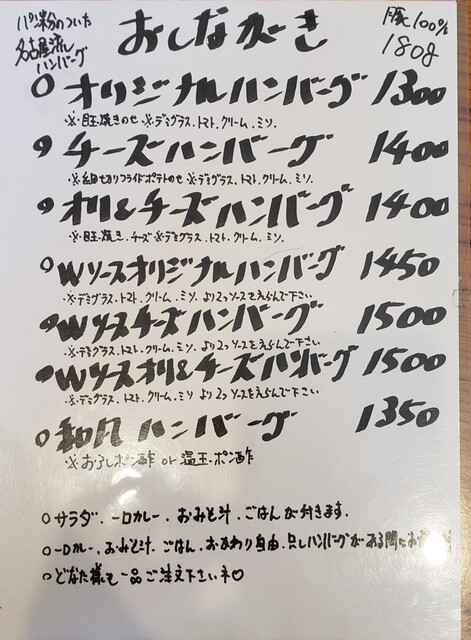 パン粉のついた
名古屋流
ハンバーグ
おしながき
豚100%
180g
○オリジナルハンバーグ 1300
※目玉焼きのせ ※デミグラス.トマト.クリーム.ミソ.
○チーズハンバーグ 1400
※細切りフライドポテトのせ ※デミグラス.トマト.クリーム.ミソ.
○オリ&チーズハンバーグ 1400
※目玉焼き.チーズ※デミグラス.トマト.クリーム.ミソ.
○Wソースオリジナルハンバーグ 1450
※デミグラス.トマト.クリーム.ミソ より2ッソースをえらんで下さい
○Wソースチーズハンバーグ 1500
※デミグラス.トマト.クリーム.ミソ より2ッソースをえらんで下さい
○Wソースオリ&チーズハンバーグ 1500
※デミグラス.トマト.クリーム.ミソ より2ッソースをえらんで下さい
○和風ハンバーグ 1350
※おろしポン酢 or 温玉.ポン酢
○サラダ.一口カレー.おみそ汁.ごはんが付きます.
○一口カレー.おみそ汁.ごはん.おかわり自由.只しハンバーグがある間に
○どなた様も一品ご注文下さいネ♡